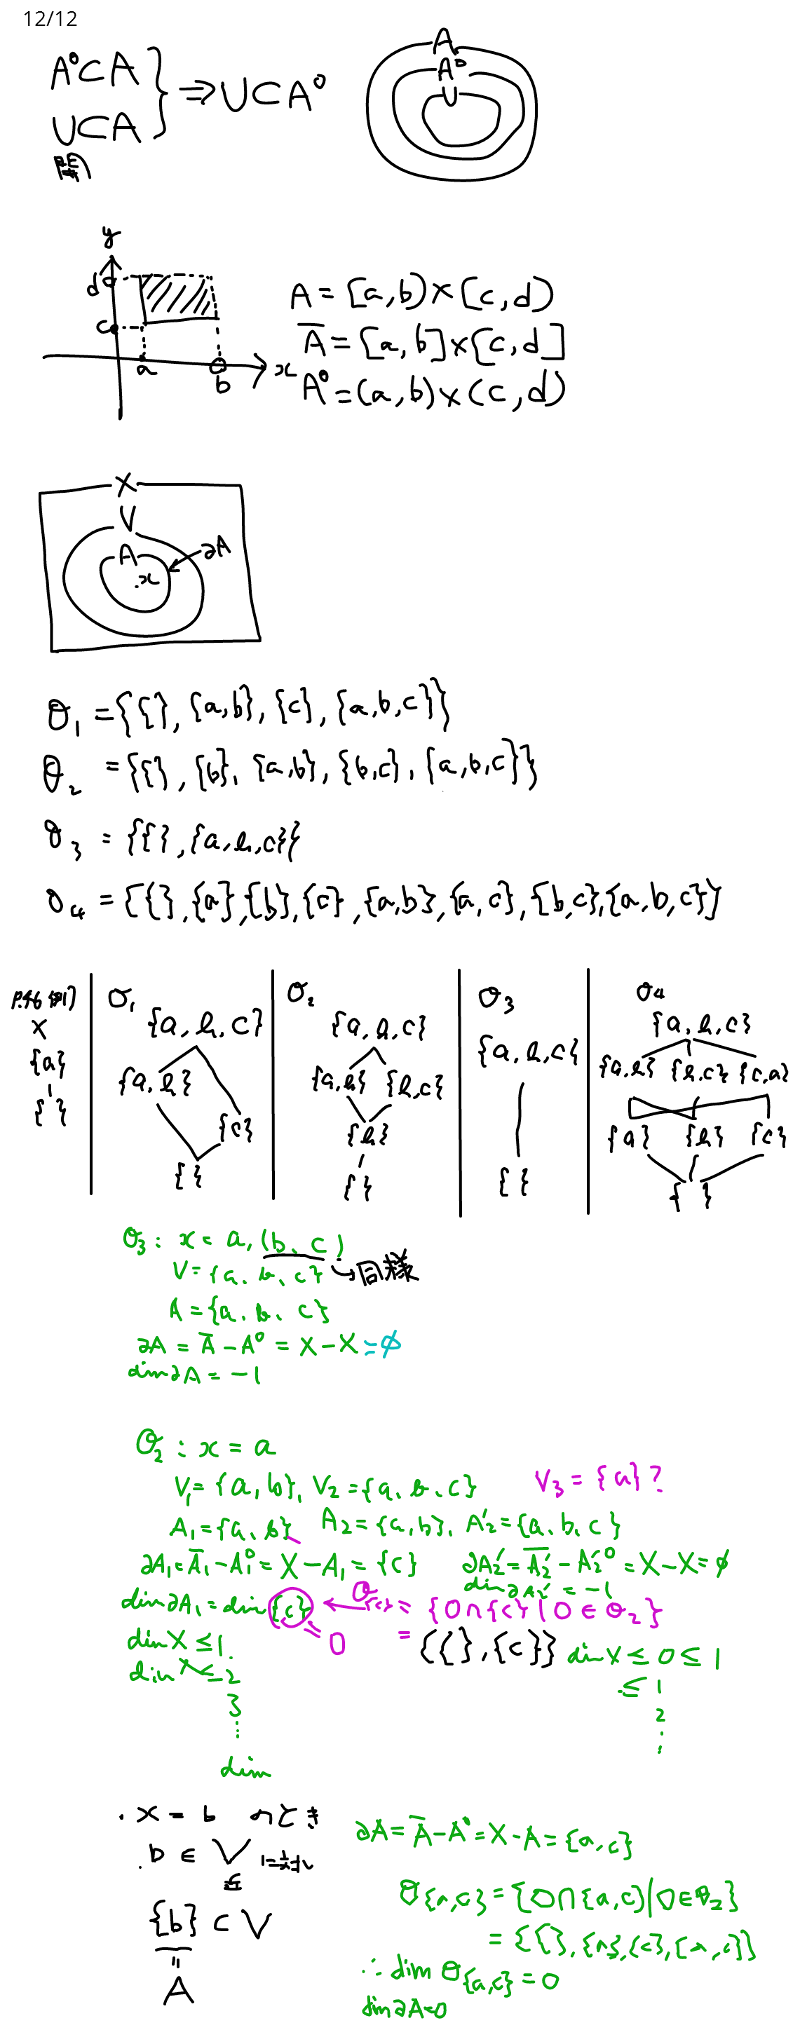 12/12
A°⊂A
U⊂A
開
⇒U⊂A°
A
A°
U
y
d
c
a
b
x
A=[a,b)×[c,d)
A̅=[a,b]×[c,d]
A°=(a,b)×(c,d)
X
V
A
∂A
.x
O₁={{},{a,b},{c},{a,b,c}}
O₂={{},{b},{a,b},{b,c},{a,b,c}}
O₃={{},{a,b,c}}
O₄={{},{a},{b},{c},{a,b},{a,c},{b,c},{a,b,c}}
P.46 例1
X
{a}
{ }
O₁
{a,b,c}
{a,b}
{c}
{ }
O₂
{a,b,c}
{a,b} {b,c}
{b}
{ }
O₃
{a,b,c}
{ }
O₄
{a,b,c}
{a,b} {b,c} {c,a}
{a} {b} {c}
{ }
O₃: x=a,(b、c)
V={a、b、c} →同様
A={a、b、c}
∂A=A̅-A°=X-X=∅
dim∂A=-1
O₂:x=a
V₁={a,b},V₂={a、b、c} V₃={a}?
A₁={a、b} A₂={a,b}、A₂'={a、b、c}
∂A₁=A̅₁-A₁°=X-A₁={c} ∂A₂'=A̅₂'-A₂'°=X-X=∅
dim∂A₂'=-1
dim∂A₁=dim{c} ← O{c}={O∩{c}|O∈O₂}
=0
={{},{c}}
dimX≤1.
dimX≤2
3
⋮
dim
dimX≤0≤1
≤1
2
⋮
・x=b のとき
.b∈V に対し
{b}⊂V
=
A
∂A=A̅-A°=X-A={a,c}
O{a,c}={O∩{a,c}|O∈O₂}
={{},{a},{c},{a,c}}
∴dim O{a,c}=0
dim∂A=0